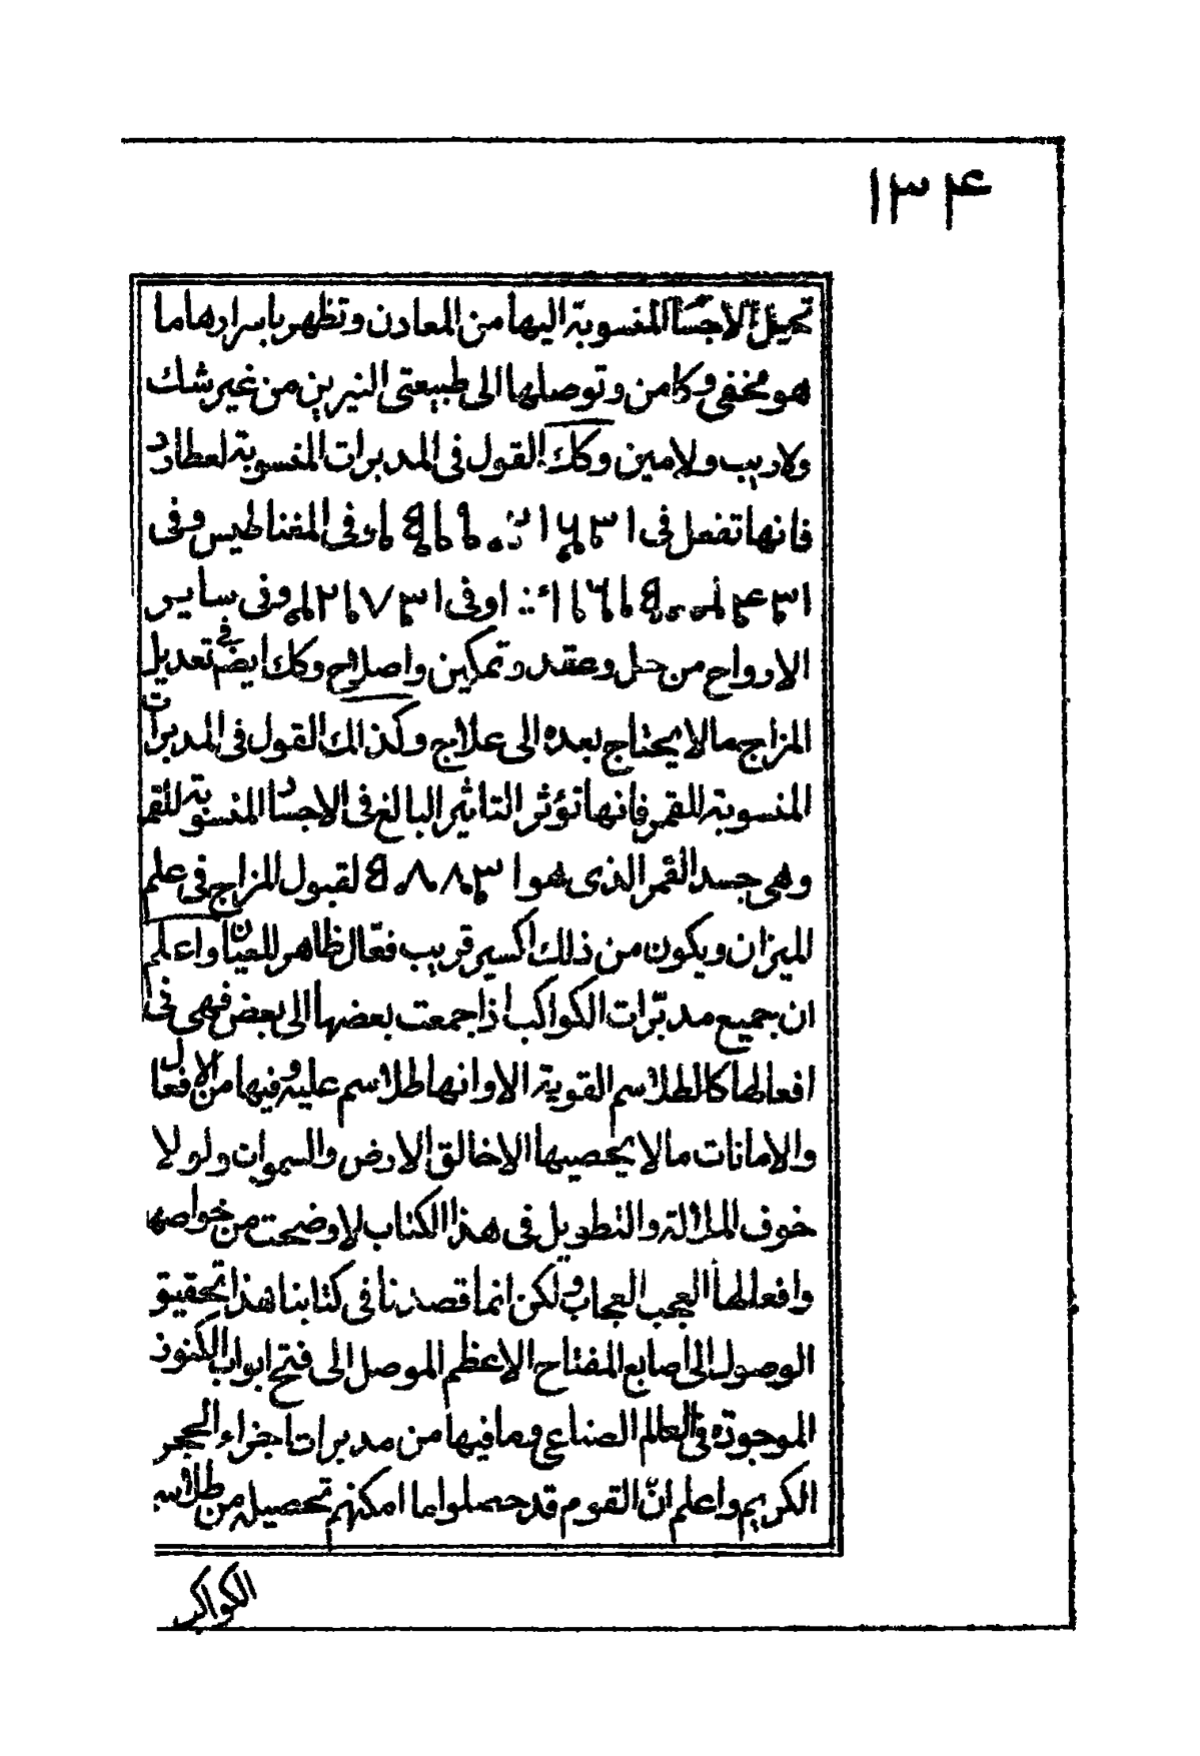 ۱۳۴
تحيل الاجسا المنسوبة اليها من المعادن وتظهر باسرارها ما
هو مخفى وكامن وتوصلها الى طبيعتى النيرين من غير شك
ولاريب ولامين وكك القول فى المدبرات المنسوبة لعطارد
فانها تفعل فى وفى المغناطيس وفى
وفى وفى ساير
الارواح من حل وعقد وتمكين واصلاح وكك ايضم فى تعديل
المزاج ما لا يحتاج بعده الى علاج وكذالك القول فى المدبرات
المنسوبة للقمر فانها تؤثر التاثير البالغ فى الاجساد المنسوبة للقمر
وهى جسد القمر الذى هو لقبول المزاج فى علم
الميزان ويكون من ذلك اكسير قريب فعّال ظاهر للعيان واعلم
ان جميع مدبّرات الكواكب اذا جمعت بعضها الى بعض فهى فى
افعالها كالطلاسم القوية الاوانها طلاسم علية وفيها من الافعال
والامانات ما لا يحصيها الا خالق الارض والسموات ولولا
خوف الملالة والتطويل فى هذا الكتاب لاوضحت من خواصها
وافعالها العجب العجاب ولكن انما قصدنا فى كتابنا هذا تحقيق
الوصول الى اصابع المفتاح الاعظم الموصل الى فتح ابواب الكنوز
الموجودة فى العالم الصناعى وما فيها من مدبرات اجزاء الحجر
الكريم واعلم انّ القوم قد حصلوا ما امكنهم تحصيله من طلاسم
الكواكب